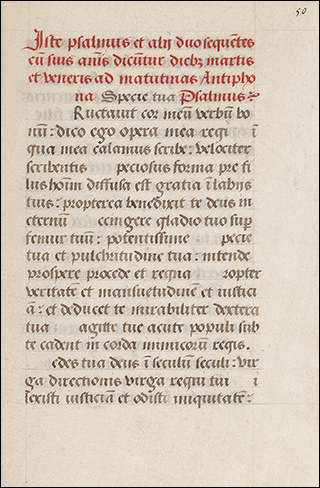 50
Iste psalmus et alij duo sequẽtes
cũ suis añis dicũtur diebꝫ martis
et veneris ad matutinas Antipho
na Specie tua Psalmus:
Ructauit cor meũ verbũ bo
nũ: dico ego opera mea regi i
gua mea calamus scribe: velociter
scribentis peciosus forma pre fi
lijs hoĩm diffusa est gratia ĩ labijs
tuis: propterea benedixit te deus in
eternũ ccingere gladio tuo sup
femur tuũ: potentissime. pecie
tua et pulchritudine tua: intende
prospere procede et regna ropter
veritatẽ et mansuetudinẽ et iustici
ã: et deducet te mirabiliter dextera
tua agitte tue acute populi sub
te cadent in corda inimicorũ regis.
edes tua deus ĩ seculũ seculi: vir
ga directionis virga regni tui i
lexisti iusticiã et odisti iniquitatẽ: